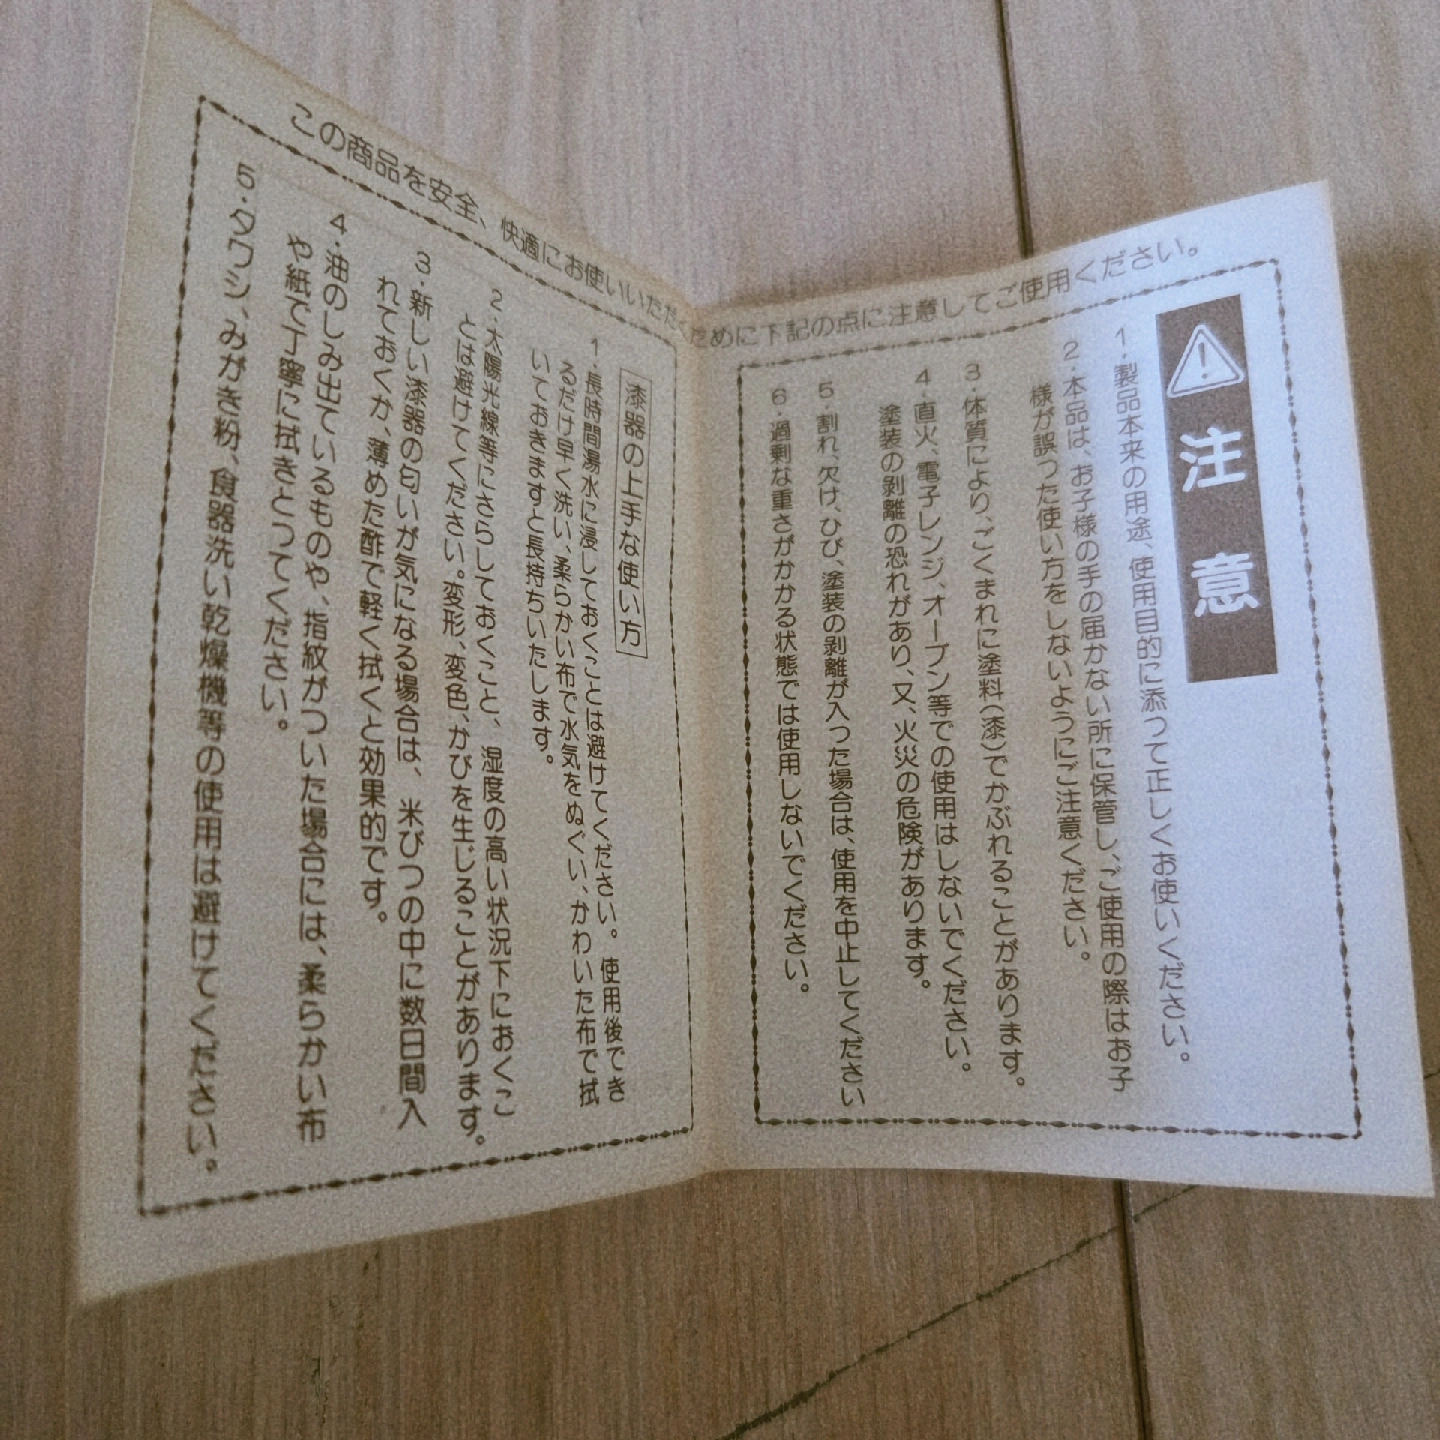 この商品を安全、快適にお使いいただくために下記の点に注意してご使用ください。
注意
1・製品本来の用途、使用目的に添つて正しくお使いください。
2・本品は、お子様の手の届かない所に保管し、ご使用の際はお子
様が誤った使い方をしないようにご注意ください。
3・体質により、ごくまれに塗料(漆)でかぶれることがあります。
4・直火、電子レンジ、オーブン等での使用はしないでください。
塗装の剥離の恐れがあり、又、火災の危険があります。
5・割れ、欠け、ひび、塗装の剥離が入った場合は、使用を中止してください
6・過剰な重さがかかる状態では使用しないでください。
漆器の上手な使い方
1・長時間湯水に浸しておくことは避けてください。使用後でき
るだけ早く洗い、柔らかい布で水気をぬぐい、かわいた布で拭
いておきますと長持ちいたします。
2・太陽光線等にさらしておくこと、湿度の高い状況下におくこ
とは避けてください。変形、変色、かびを生じることがあります。
3・新しい漆器の匂いが気になる場合は、米びつの中に数日間入
れておくか、薄めた酢で軽く拭くと効果的です。
4・油のしみ出ているものや、指紋がついた場合には、柔らかい布
や紙で丁寧に拭きとつてください。
5・タワシ、みがき粉、食器洗い乾燥機等の使用は避けてください。